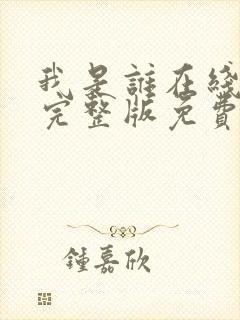 我是誰在綫
完整版免費
鍾嘉欣